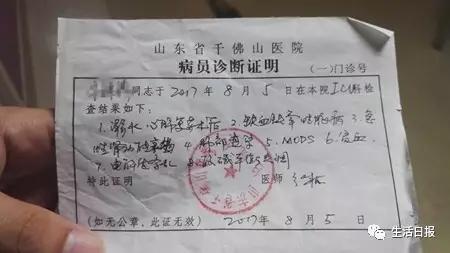 山东省千佛山医院
病员诊断证明 (一)门诊号
同志于2017年8月5日在本院ICU科检
查结果如下:
1.溺水 心肺复苏术后 2.缺血缺氧性脑病 3.急
性肾功能 4.肺部感染 5.MODS 6.贫血
7.电解质紊乱 8.酸碱平衡失调
特此证明 医师
(如无公章,此证无效) 2017年8月5日
生活日报